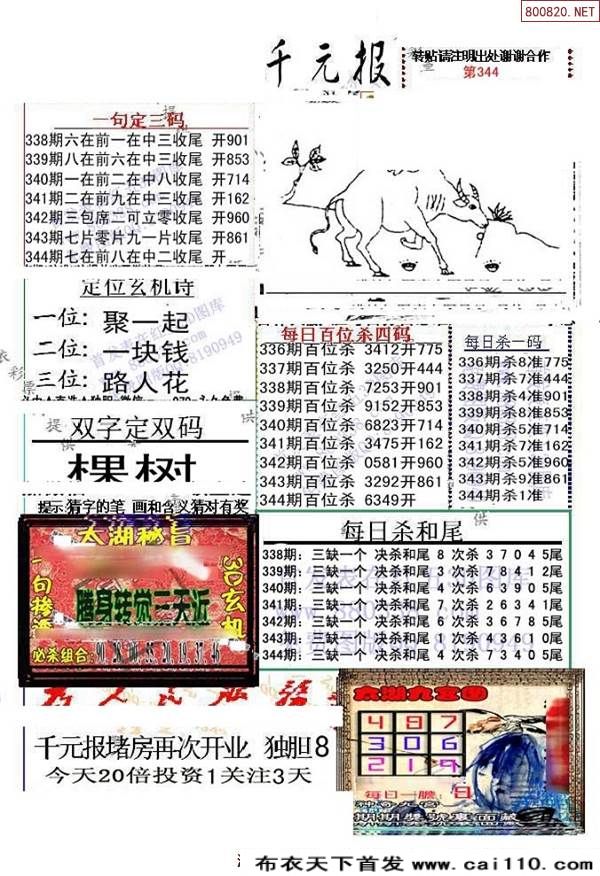 800820.NET
千元报
转贴请注明出处谢谢合作
第344
一句定三码
338期六在前一在中三收尾 开901
339期八在前六在中三收尾 开853
340期一在前二在中八收尾 开714
341期二在前九在中三收尾 开162
342期三包席二可立零收尾 开960
343期七片零片九一片收尾 开861
344期七在前八在中二收尾 开
定位玄机诗
一位: 聚一起
二位: 一块钱
三位: 路人花
双字定双码
棵树
提示:猜字的笔 画和含义猜对有奖
每日百位杀四码
336期百位杀 3412开775
337期百位杀 3250开444
338期百位杀 7253开901
339期百位杀 9152开853
340期百位杀 6823开714
341期百位杀 3475开162
342期百位杀 0581开960
343期百位杀 3292开861
344期百位杀 6349开
每日杀一码
336期杀8准775
337期杀7准444
338期杀4准901
339期杀8准853
340期杀5准714
341期杀7准162
342期杀5准960
343期杀9准861
344期杀1准
太湖秘旨
一句
3D玄机
腾身转觉三天近
必杀组合:
每日杀和尾
338期: 三缺一个 决杀和尾 8 次杀 3 7 0 4 5尾
339期: 三缺一个 决杀和尾 3 次杀 7 8 4 1 2尾
340期: 三缺一个 决杀和尾 4 次杀 6 3 9 0 5尾
341期: 三缺一个 决杀和尾 7 次杀 2 6 3 4 1尾
342期: 三缺一个 决杀和尾 6 次杀 9 8 5 3 7尾
343期: 三缺一个 决杀和尾 9 次杀 4 3 6 1 0尾
344期: 三缺一个 决杀和尾 4 次杀 7 3 4 0 5尾
千元报堵房再次开业 独胆8
今天20倍投资1关注3天
太湖九宫图
4 8 7
3 0 6
2 1 9
每日一胆: 8
布衣天下首发 www.cai110.com